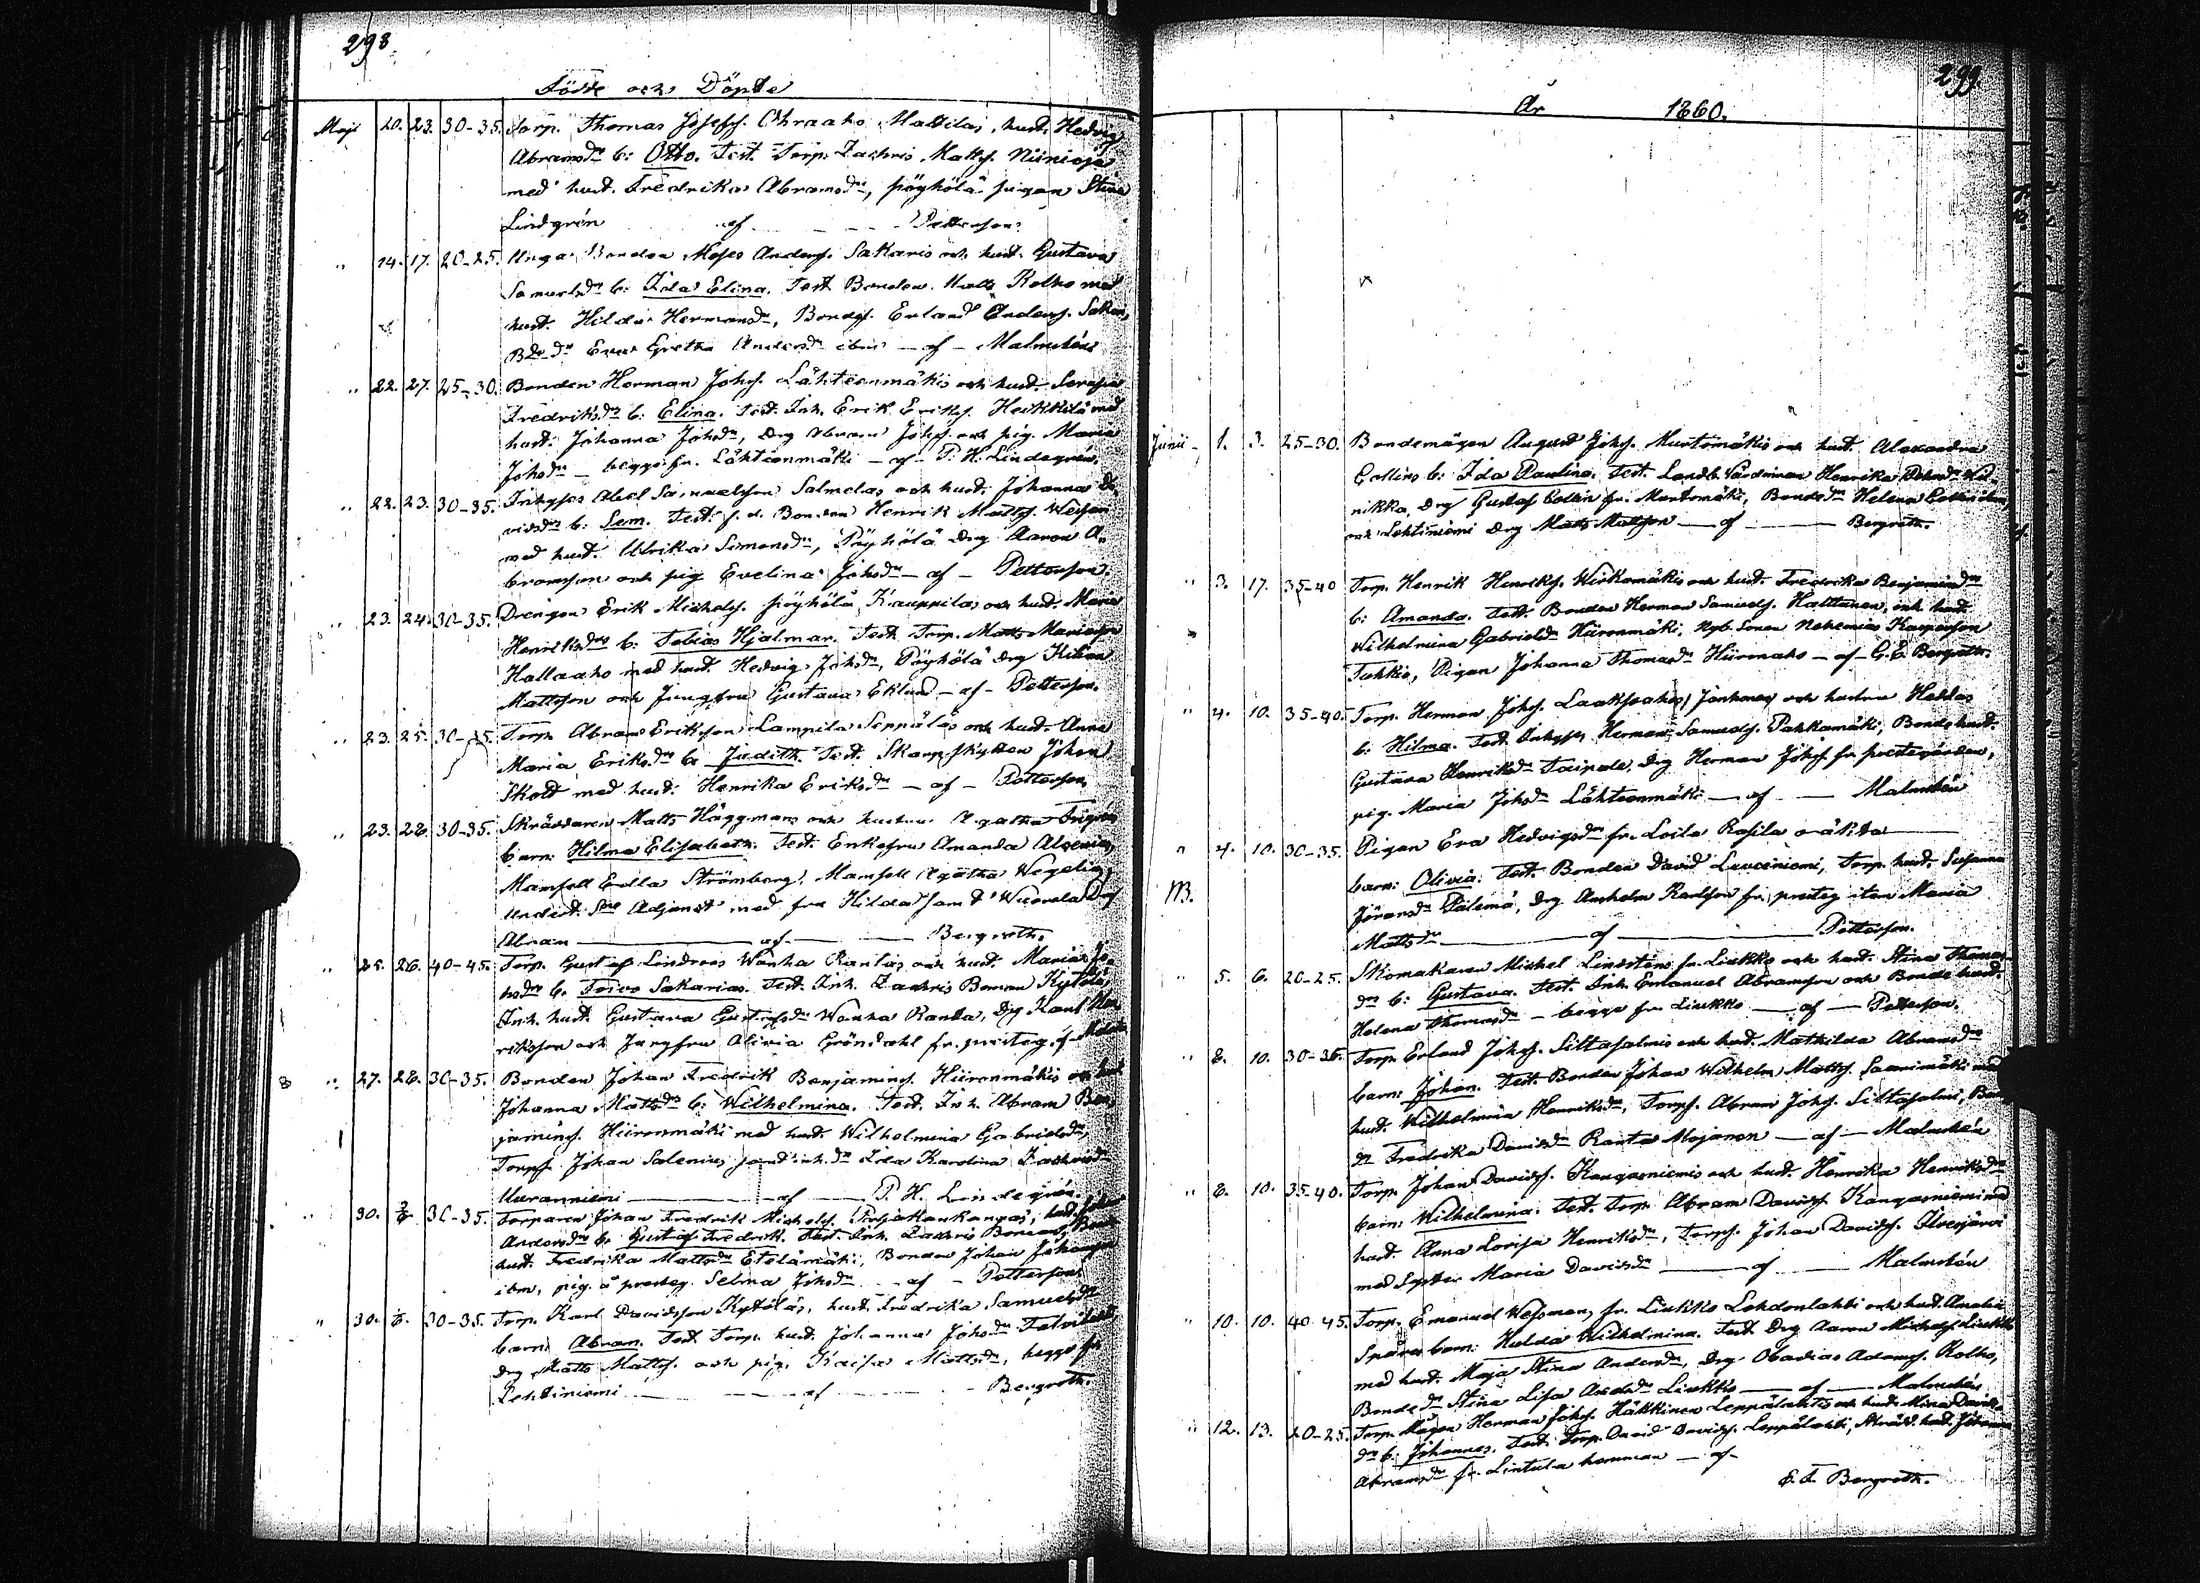 298.
Födde och Döpte
Maji 20. 23. 30-35. Torp. Thomas Josefss. Ohraaho Mattilas, hust. Hedvig
Abramsdr b: Otto. Test. Torp. Zachris Mattss. Niinioja
med hust. Fredrika Abramsdr, Pöyhölä pigan Stina
Lindgrén af Petterson.
" 14. 17. 20-25. Unga Bonden Moses Anderss. Sakaris och hust. Gustava
Samuelsdr b: Ida Elina. Test. Bonden Matts Kolho med
hust. Hilda Hermansdr, Bondes. Erland Anderss. Sakari,
Bdedr Eva Gretha Andersdr ibm – af – Malmstén
" 22. 27. 25-30. Bonden Herman Johss. Lähteenmäkis och hust. Serafia
Fredriksdr b: Elina. Test. Inh. Erik Erikss. Heikkilä med
hust. Johanna Johsdr, Drg Abram Johss. och pig. Maria
Johsdr – begge fr. Lähteenmäki – af – P. H. Lindegrén.
" 22. 23. 30-35. Inhyses Abel Samuelsson Salmelas och hust. Johanna Da-
vidsdr b: Sem. Test. f. d. Bonden Henrik Mattss.
med hust. Ulrika Simonsdr, Pöyhölä Drg Aaron A-
bramsson och pig Evelina Johsdr – af – Petterson.
" 23. 24. 30-35. Drengen Erik Michelss. Pöyhölä Kauppilas och hust. Maria
Henriksdr b: Tobias Hjalmar. Test. Torp. Matts
Hallaaho med hust. Hedvig Johsdr, Pöyhölä drg Kilian
Mattsson och Jungfru Gustava Eklund – af – Petterson.
" 23. 25. 30-35. Torp. Abram Eriksson Lampila Seppäläs och hust. Anna
Maria Eriksdr b: Judith. Test. Skarpskytten Johan
Sköld med hust. Henrika Eriksdr – af – Petterson.
" 23. 28. 30-35. Skräddaren Matts Häggman och hustru Agatha
barn: Hilma Elisabeth. Test. Enkefru Amanda
Mamsell Edla Strömberg, Mamsell Agatha Wegelius,
Underst. Adjunct med fru Hilda samt
Abram – af – Bergroth.
" 25. 26. 40-45. Torp. Gustaf Lindroos Wanha Rantas och hust. Maria Jo-
hsdr b: Toivo Sakarias. Test. Inh. Zachris Boman Kytölä,
Inh. hust. Gustava Gustafsdr Wanha Ranta, Drg Karl Hen-
riksson och Jungfru Olivia Gröndahl fr. presteg. af
" 27. 28. 30-35. Bonden Johan Fredrik Benjamins. Hiironmäkis och hust
Johanna Mattsdr b: Wilhelmina. Test. Inh. Abram Ben-
jamins. Hiironmäki med hust. Wilhelmina Gabrielsdr,
Torps. Johan Salenius samt inh.dr Ida Karolina Zachrisdr
Uuranniemi – af – P. H. Lindegrén.
" 30. 30-35. Torparen Johan Fredrik Michelss. , hust.
Andersdr b: Gustaf Fredrik. Test. Inh. Zachris Boman,
hust. Fredrika Mattsdr Etelämäki, Bonden Johan Johansson
ibm, pig. å presteg. Selma Johsdr – af – Petterson.
" 30. 30-35. Torp. Karl Davidsson Kytöläs, hust. Fredrika Samuelsdr
barn: Abram. Test. Torp. hust. Johanna Johsdr
drg Matts Mattss. och pig. Kaisa Mattsdr, begge fr
Lehtiniemi – af – Bergroth.
299.
År 1860.
Junii 1. 3. 25-30. Bondemågen August Johss. Murtomäkis och hust. Alexandra
Collins b: Ida Paulina. Test. Landtb. Värdinnan Henrika
nikka, Drg Gustaf Collin fr. Murtomäki, Bondedr Helena Collin ibm,
och Lehtiniemi Drg Matts Mattsson – af – Bergroth.
" 3. 17. 35-40 Torp. Henrik Henrikss. Wirkamäkis och hust. Fredrika Benjaminsdr
b: Amanda. Test. Bonden Herman Samuelss. Halttunen, inh hust.
Wilhelmina Gabrielsdr Hiironmäki, Nyb. Sonen Nehemias Kasperson
Tukkia, Pigan Johanna Thomasdr Hiironaho – af – G. E. Bergroth.
" 4. 10. 35-40. Torp. Herman Johss. Laaksoahos, Jonkunas och hustru Hedda
b: Hilma. Test. Inhyses Herman Samuelss. Pakkamäki, Bonde hust.
Gustava Henriksdr Taipale, Drg Herman Johss. fr. prestegården,
pig. Maria Johsdr Lähteenmäki – af – Malmstén
" 4. 10. 30-35. Pigan Eva Hedvigsdr fr. Loila Rasila oäkta
barn: Olivia. Test. Bonden David Luuceniemi, Torp. hust. Susanna
Göransdr Pälemä, Drg Anshelm Karlsson fr. presteg. itan Maria
Mattsdr – af – Petterson.
M.
" 5. 6. 20-25. Skomakaren Michel Lindsténs fr. Liukko och hust. Stina Thomas-
dr b: Gustava. Test. Inh. Emanuel Abramsson och Bonde hust.
Helena Thomasdr – begge fr. Liukko – af – Petterson.
" 8. 10. 30-35. Torp. Erland Johss. Siltasalmis och hust. Mathilda Abramsdr
barn: Johan. Test. Bonden Johan Wilhelm Mattss. Saarimäki med
hust. Wilhelmina Henriksdr, Torps. Abram Johss. Siltasalmi, Bon
dr Fredrika Davidsdr Ranta Mojanen – af – Malmstén
" 8. 10. 35-40. Torp. Johan Davidss. Kangasniemis och hust. Henrika Henriksdr
barn: Wilhelmina. Test. Torp. Abram Davidss. Kangasniemi med
hust. Anna Lovisa Henriksdr, Torps. Johan Davidss. Ilvesjärvi
med Syster Maria Davidsdr – af – Malmstén
" 10. 10. 40-45. Torp. Emanuel Wessman, fr. Liukko Lehdonlahti och hust. Amalia
Spåra barn: Hulda Wilhelmina. Test. Drg Aaron Michelss. Liukko
med hust. Maja Stina Andersdr, Drg Obadias Adamss. Kolho,
Bondedr Stina Lisa Andsdr Liukko – af – Malmstén
" 12. 13. 20-25. Torp. Mågen Herman Johss. Häkkinen Leppälahtis och hust. Mina Davids-
dr b: Johannes. Test. Torp. David Davidss. Leppälahti, Skräd. hust. Johanna
Abramsdr fr. Lintula hemman – af –
E. F. Bergroth.